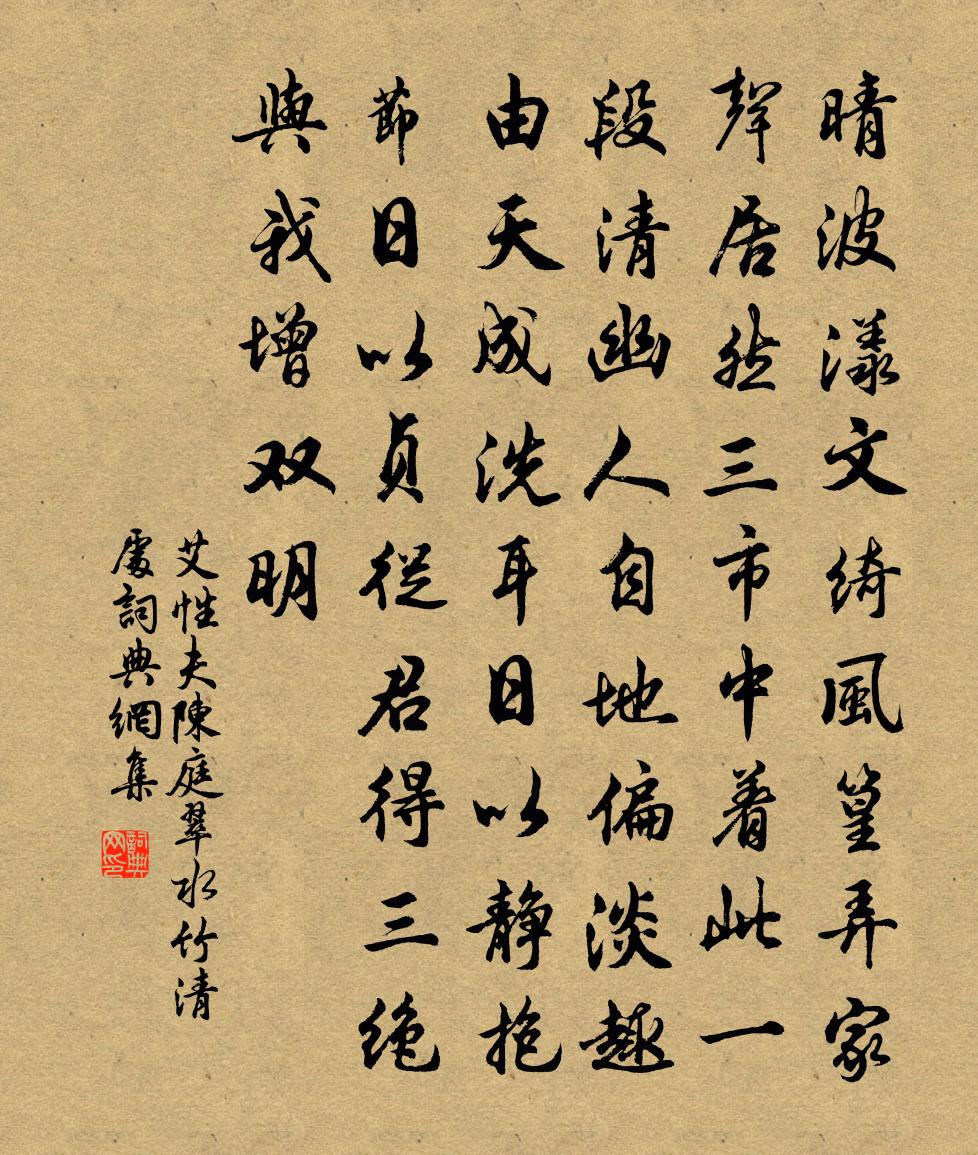 晴波漾文綺風篁弄家
聲居然三市中着此一
段清幽人自地偏淡趣
由天成洗耳日以靜抱
節日以貞從君得三绝
與我增双明
艾性夫陳庭翠水竹清
處詞典網集
詞典網印